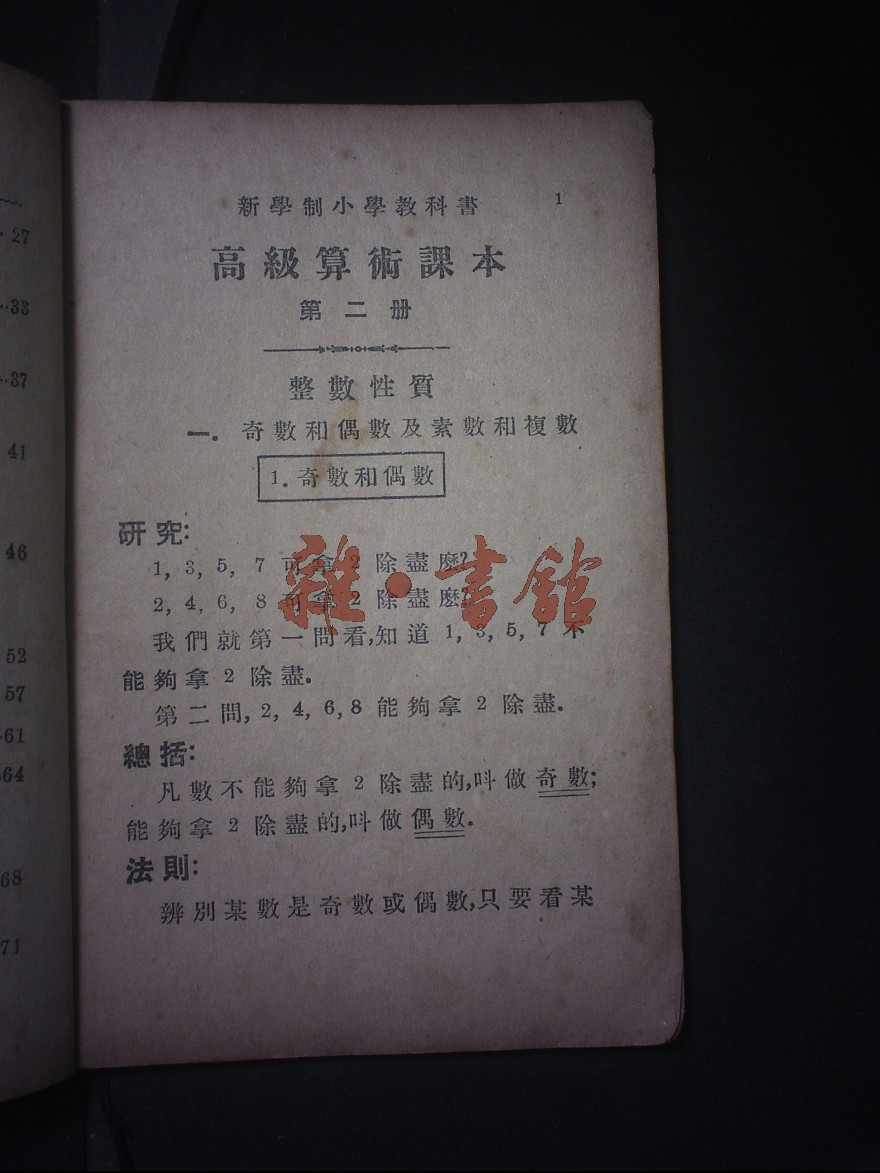 27
33
37
41
46
52
57
61
64
68
71
新學制小學教科書 1
高級算術課本
第二册
整數性質
一. 奇數和偶數及素數和複數
1. 奇數和偶數
研究:
1, 3, 5, 7 可拿 2 除盡麼?
2, 4, 6, 8 可拿 2 除盡麼?
我們就第一問看,知道 1, 3, 5, 7 不
能夠拿 2 除盡.
第二問, 2, 4, 6, 8 能夠拿 2 除盡.
總括:
凡數不能夠拿 2 除盡的,叫做奇數;
能夠拿 2 除盡的,叫做偶數.
法則:
辨別某數是奇數或偶數,只要看某
雜·書館